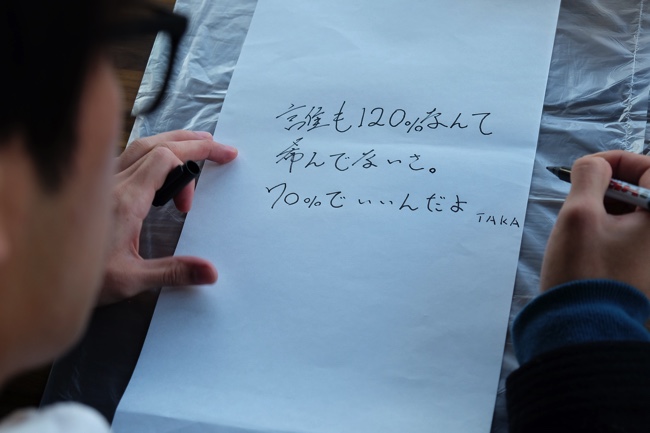 誰も120%なんて
希んでないさ。
70%でいいんだよ
TAKA